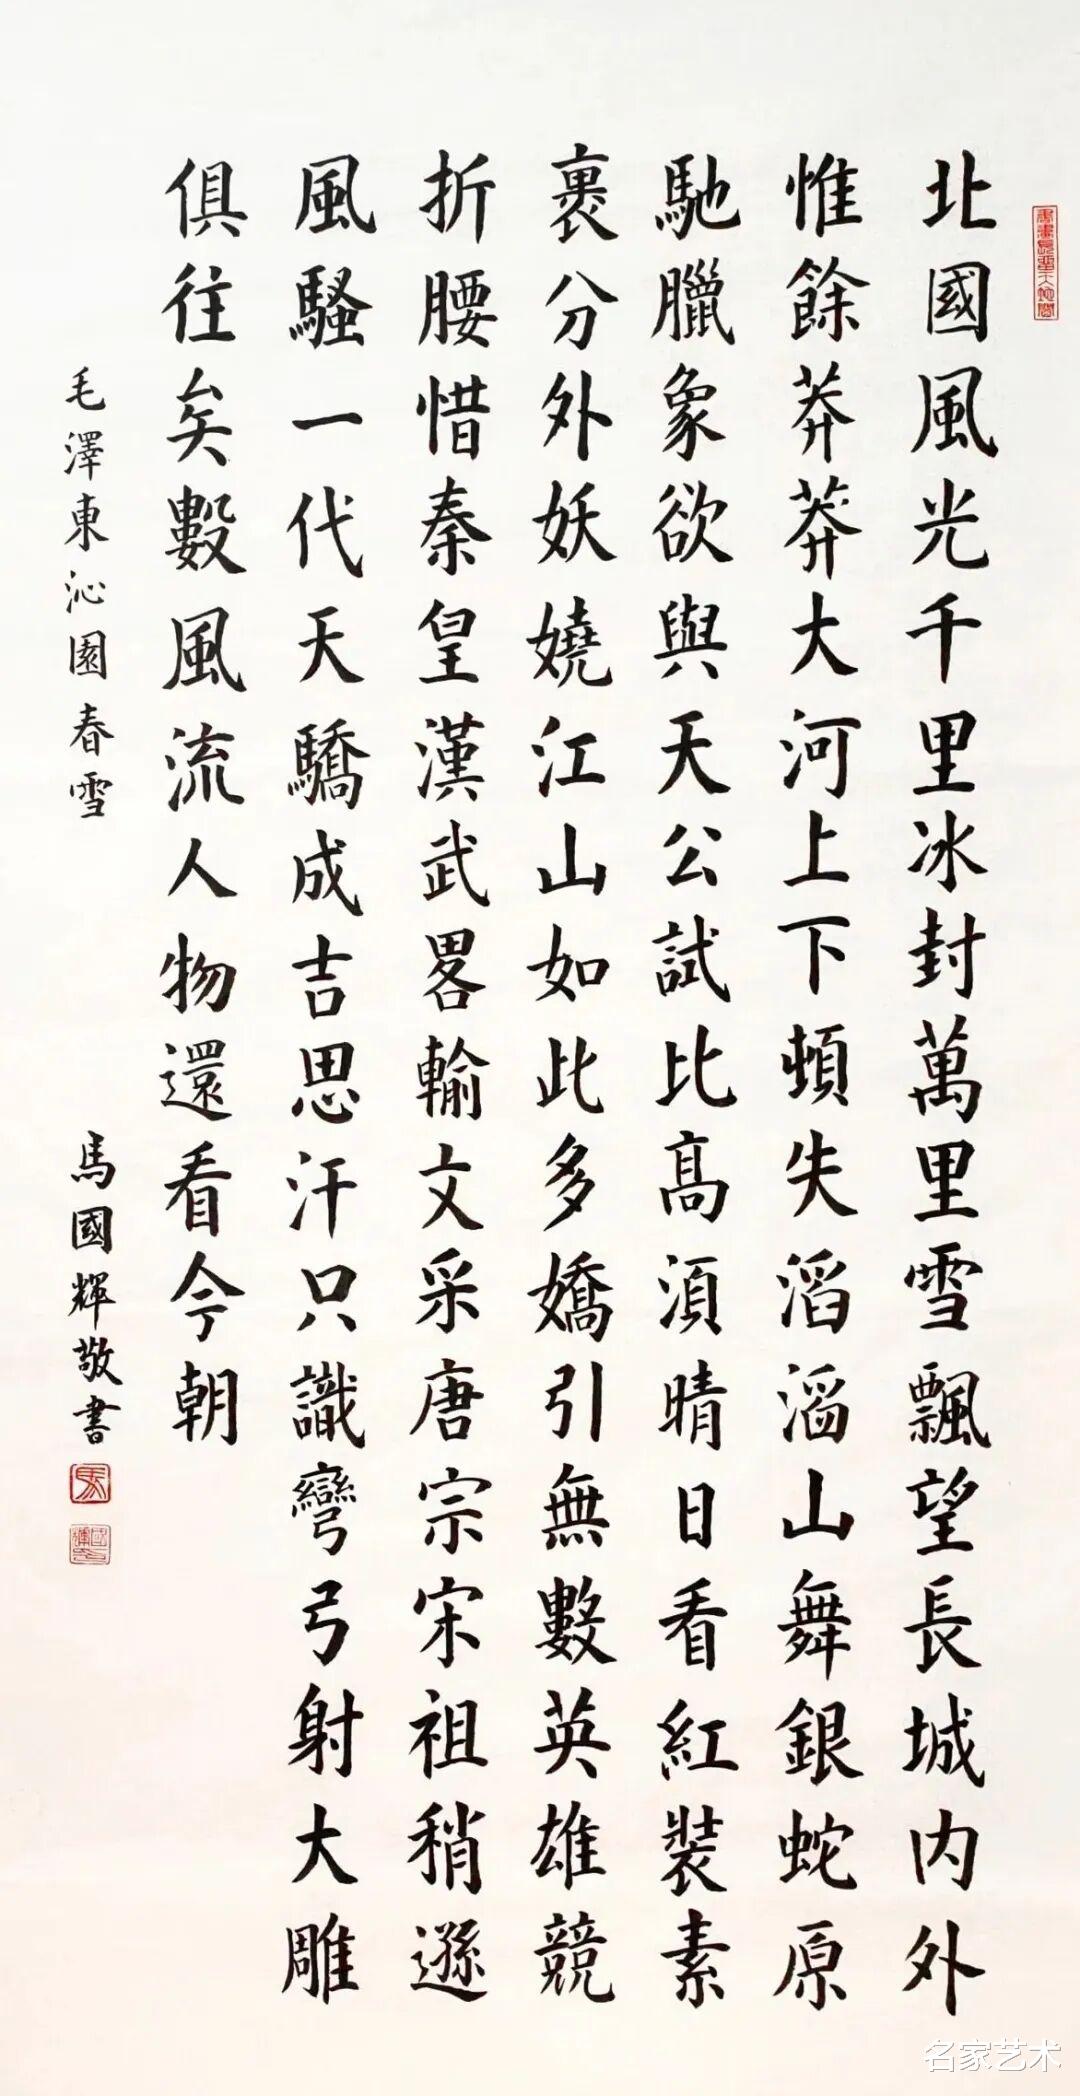 北國風光千里冰封萬里雪飄望長城内外
惟餘莽莽大河上下頓失滔滔山舞銀蛇原
馳臘象欲與天公試比髙湏晴日看紅裝素
裹分外妖嬈江山如此多嬌引無數英雄競
折腰惜秦皇漢武畧輸文采唐宗宋祖稍遜
風騷一代天驕成吉思汗只識彎弓射大雕
俱往矣數風流人物還看今朝
毛澤東沁園春雪
馬國輝敬書
馬
名家艺术